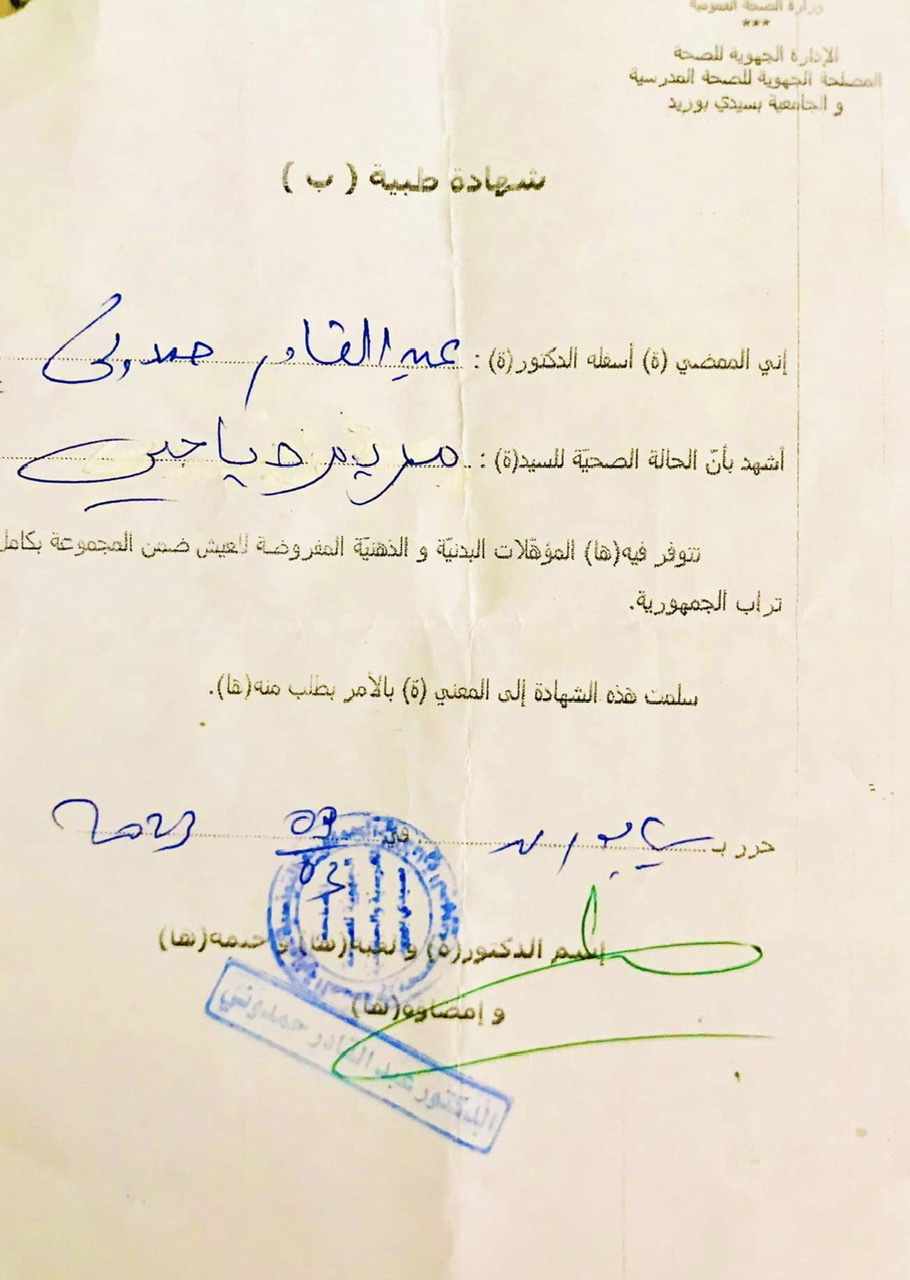 وزارة الصحة العمومية
***
الإدارة الجهوية للصحة
المصلحة الجهوية للصحة المدرسية
و الجامعية بسيدي بوزيد
شهادة طبية ( ب )
إني الممضي (ة) أسفله الدكتور(ة) : عبد القادر حمدوني
أشهد بأنّ الحالة الصحيّة للسيد(ة) : مريم
تتوفر فيه(ها) المؤهّلات البدنيّة و الذهنيّة المفروضة للعيش ضمن المجموعة بكامل
تراب الجمهورية.
سلمت هذه الشهادة إلى المعني (ة) بالأمر بطلب منه(ها).
حرر بـ في 2023
إسم الدكتور(ة) و لقبه(ها) و ختمه(ها)
و إمضاؤه(ها)
الدكتور عبد القادر حمدوني